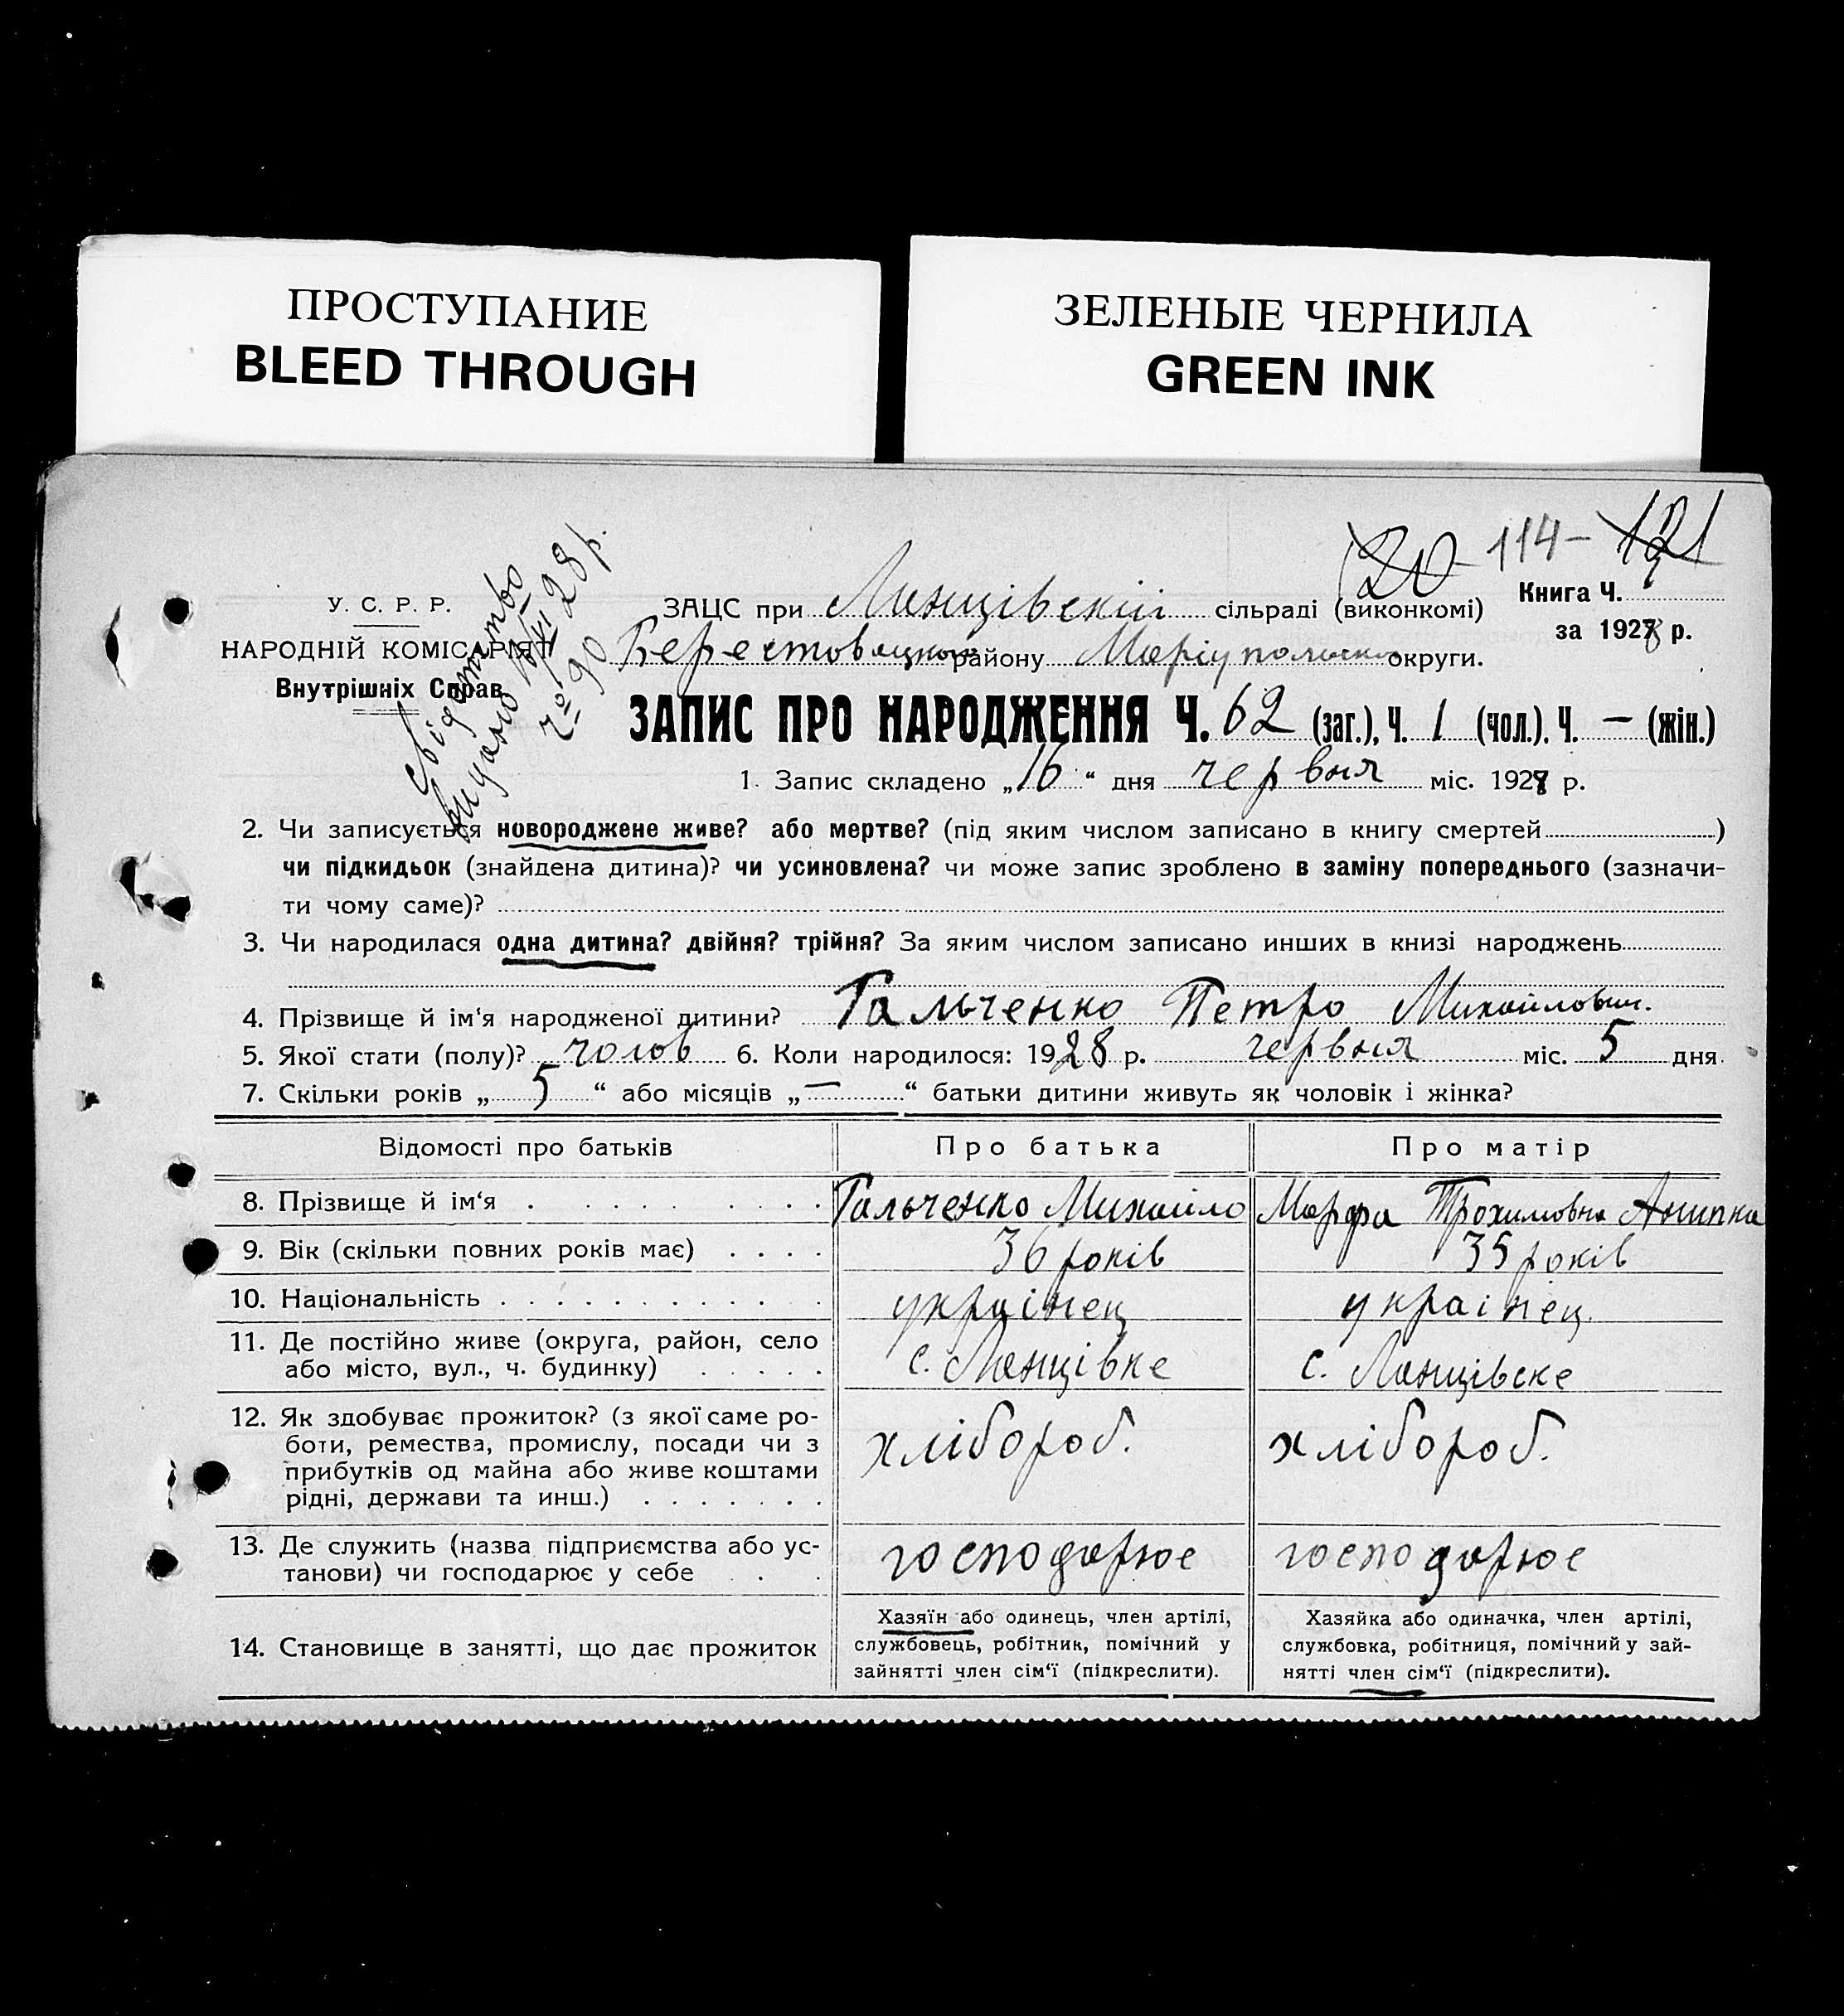 ПРОСТУПАНИЕ
BLEED THROUGH
ЗЕЛЕНЫЕ ЧЕРНИЛА
GREEN INK
20 - 114 - 121
У. С. Р. Р.
НАРОДНІЙ КОМІСАРІЯТ
Внутрішніх Справ
Свідоцтво
видано 28 р.
№ 90
ЗАЦС при сільраді (виконкомі)
району Маріупольської округи.
Книга Ч.
за 1928 р.
ЗАПИС ПРО НАРОДЖЕННЯ Ч. 62 (заг.), Ч. 1 (чол.). Ч. — (жін.)
1. Запис складено „16“ дня червня міс. 1928 р.
2. Чи записується новороджене живе? або мертве? (під яким числом записано в книгу смертей)
чи підкидьок (знайдена дитина)? чи усиновлена? чи може запис зроблено в заміну попереднього (зазначи-
ти чому саме)?
3. Чи народилася одна дитина? двійня? трійня? За яким числом записано инших в книзі народжень
4. Прізвище й ім‘я народженої дитини? Гальченко Петро Михайлович.
5. Якої стати (полу)? чолов 6. Коли народилося: 1928 р. червня міс. 5 дня
7. Скільки років „5“ або місяців „—“ батьки дитини живуть як чоловік і жінка?
Відомості про батьків Про батька Про матір
8. Прізвище й ім‘я Гальченко Михайло Марфа Трохимовна
9. Вік (скільки повних років має) 36 років 35 років
10. Національність українець українец.
11. Де постійно живе (округа, район, село
або місто, вул., ч. будинку) с. с.
12. Як здобуває прожиток? (з якої саме ро-
боти, ремества, промислу, посади чи з
прибутків од майна або живе коштами
рідні, держави та инш.) хлібороб. хлібороб.
13. Де служить (назва підприємства або ус-
танови) чи господарює у себе господарює господарює
14. Становище в занятті, що дає прожиток
Хазяїн або одинець, член артілі,
службовець, робітник, помічний у
зайнятті член сім‘ї (підкреслити).
Хазяйка або одиначка, член артілі,
службовка, робітниця, помічний у зай-
нятті член сім‘ї (підкреслити).